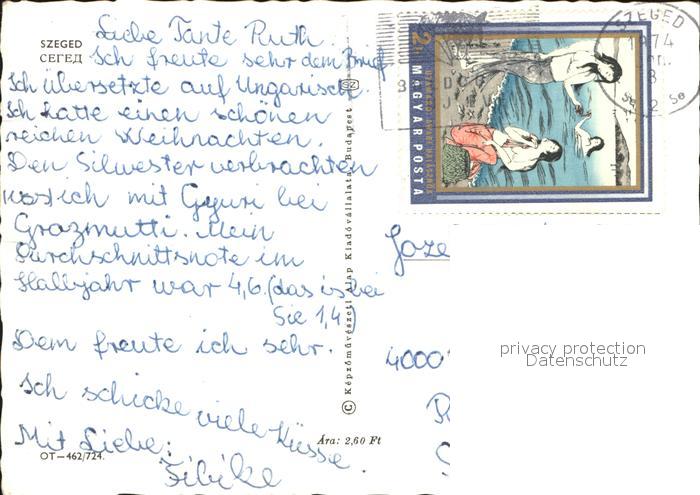 SZEGED
СЕГЕД
Liebe Tante Ruth.
Ich freute sehr dem Brief
Ich übersetzte auf Ungarisch.
Ich hatte einen schönen
reichen Weihnachten.
Den Silwester verbrachten
ich mit Gyuri bei
Grozmutti. Mein
Durchschnittsnote im
Halbjahr war 4,6. (das is bei
Sie 1,4)
Dem freute ich sehr.
Ich schicke viele Küsse.
Mit Liebe:
Zibike
OT—462/724.
Ára: 2,60 Ft
© Képzőművészeti Alap Kiadóvállalata, Budapest
2 Ft
MAGYAR POSTA
SZEGED
1974
4000
privacy protection
Datenschutz